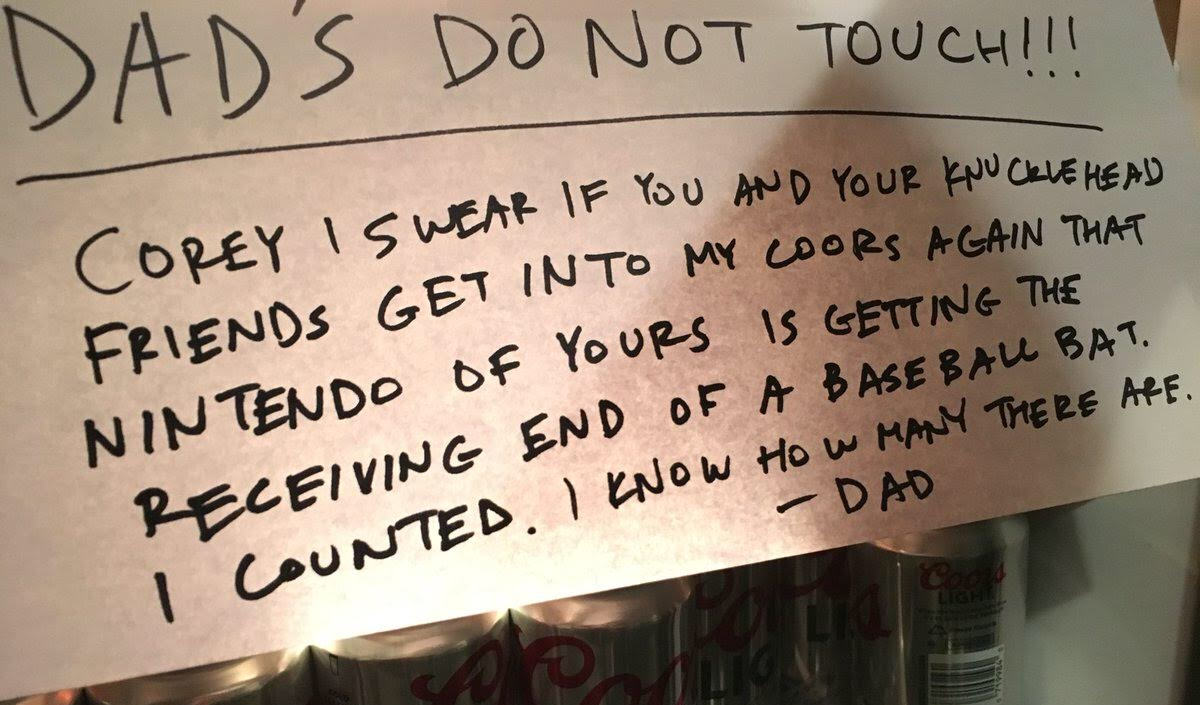 DAD'S DO NOT TOUCH!!!
COREY I SWEAR IF YOU AND YOUR KNUCKLEHEAD
FRIENDS GET INTO MY COORS AGAIN THAT
NINTENDO OF YOURS IS GETTING THE
RECEIVING END OF A BASEBALL BAT.
I COUNTED. I KNOW HOW MANY THERE ARE.
– DAD
Coors
LIGHT
Coors
LIGHT
Coors